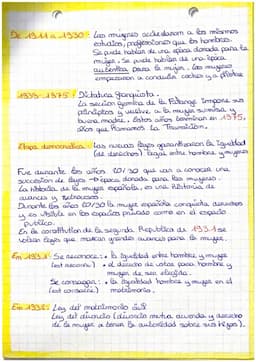 De 1911 a 1930: Las mujeres accedieron a los mismos
estudios, profesiones que los hombres.
Se puede hablar de una época dorada para la
mujer. Se puede hablar de una época
auténtica para la mujer. Las mujeres
empezaron a conducir coches y a pilotar
1939-1975: Dictadura franquista.
La sección femina de la Falange impone sus
principios y vuelve a la mujer sumisa y
buena madre. Estos años terminan en 1975,
años que llamamos La Transición.
Etapa democrática: Las nuevas leyes garantizaron la igualdad
(de derechos) legal entre hombres y mujeres
Fue durante los años 20/30 que vas a conocer una
succesion de leyes → época dorada para las mujeres.
La historia de la mujer española, es una historia de
avances y retrocesos.
Durante los años 20/30 la mujer española conquista derechos
y es visible en los espacios privado como en el espacio
publico.
En la constitution de la segunda Republica de 1931 se
votan leyes que marcan grandes avances para la mujer.
En 1931: Se reconoce: • la igualdad entre hombre y mujer
(est reconnu) • el derecho de votar para hombre y
mujer, de ser elegida.
Se consagra: • la igualdad hombre y mujer en el
(est consacré) matrimonio.
En 1932: Ley del matrimonio civil
Ley del divorcio (divorcio mutuo acuerdo y derecho
de la mujer a tener la autoridad sobre sus hijos).